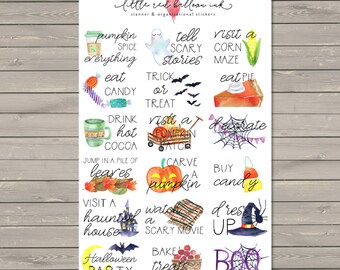 little red balloon ink
planner & organizational stickers
pumpkin
SPICE
everything
tell
SCARY
stories
visit a
CORN
MAZE
eat
CANDY
TRICK
OR
TREAT
eat PIE
DRINK
hot
COCOA
visit a
PUMPKIN
PATCH
decorate
JUMP IN A PILE OF
leaves
CARVE
a
PUMPKIN
BUY
candy
VISIT A
haunted
house
watch
a
SCARY MOVIE
dress
UP
Halloween
PARTY
BAKE
treats
BOO